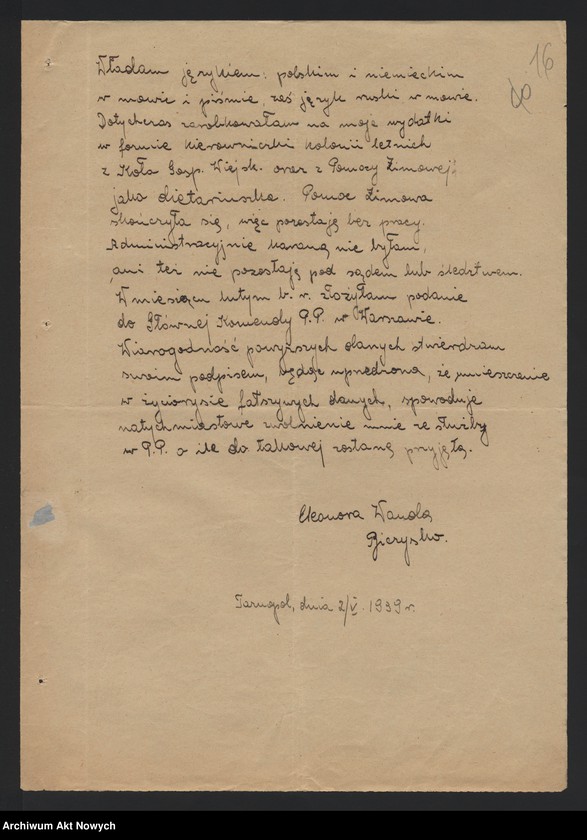 16
Władam językiem: polskim i niemieckim
w mowie i piśmie, zaś język ruski w mowie.
Dotychczas zarobkowałam na moje wydatki
w formie kierowniczki kolonii letnich
z Koła Gosp. Wiejsk. oraz z Pomocy Zimowej,
jako dietariuszka. Pomoc Zimowa
skończyła się, więc pozostaję bez pracy.
Administracyjnie karaną nie byłam,
ani też nie pozostaję pod sądem lub śledztwem.
W miesiącu lutym b. r. złożyłam podanie
do Głównej Komendy P.P. w Warszawie.
Wiarogodność powyższych danych stwierdzam
swoim podpisem, będąc uprzedzona, że umieszczenie
w życiorysie fałszywych danych, spowoduje
natychmiastowe zwolnienie mnie ze służby
w P.P. o ile do takowej zostanę przyjętą.
Eleonora Wanda
Tarnopol, dnia 2/V. 1939 r.
Archiwum Akt Nowych